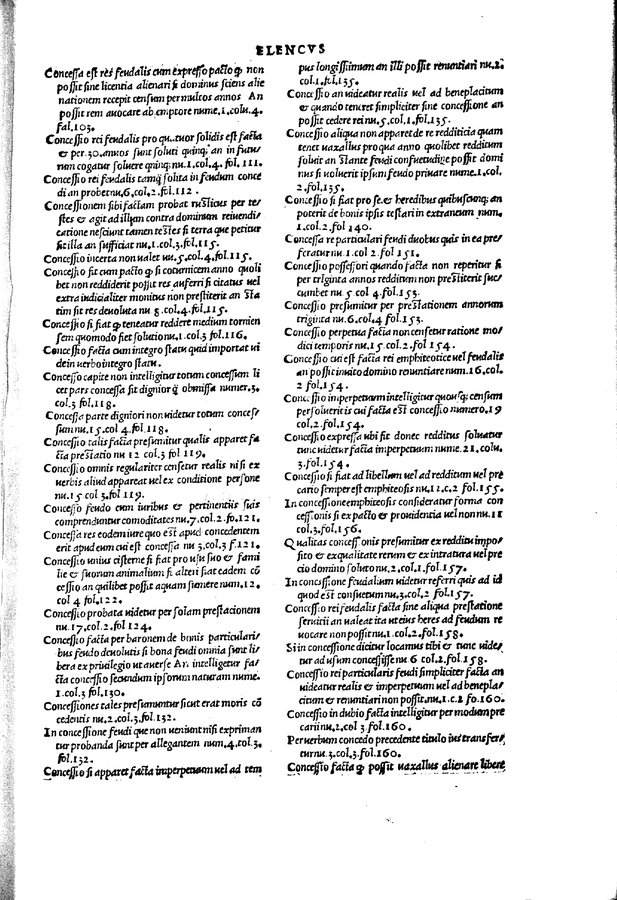 ELENCVS
Concessa est res feudalis cum expresso pacto ꝙ non
possit sine licentia alienari si dominus sciens alie
nationem recepit censum per multos annos An
possit rem auocare ab emptore nume.1.colu.4.
fal.103.
Concessio rei feudalis pro quatuor solidis est facta
& per.30.annos sunt soluti quinqꝫ an in futu/
rum cogatur soluere quinqꝫ nu.1.col.4. fol.111.
Concessio rei feudalis tamqꝫ solita in feudum conce
di an probet nu.6.col.2.fol.112.
Concessionem sibi factam probat rusticus per te/
stes & agit ad illam contra dominum reiuendi/
catione nesciunt tamen testes si terra que petitur
sit illa an sufficiat nu.1.col.3.fol.115.
Concessio incerta non ualet nu.5.col.4.fol.115.
Concessio fit cum pacto ꝙ si coturnicem anno quoli
bet non reddiderit possit res auferri si citatus uel
extra indicialiter monitus non prestiterit an sta
tim sit res deuoluta nu 8.col.4.fol.115.
Concessio si fiat ꝙ teneatur reddere medium tornien
sem quomodo fiet solutio nu.1.col.3 fol.116.
Concessio facta cum integro statu quid importat ui
de in uerbo integro statu.
Concessio capite non intelligitur totum concessum li
cet pars concessa sit dignior qꝫ obmissa numer.3.
col.3 fol.118.
Concessa parte digniori non uidetur totum conces/
sum nu.15.col 4.fol.118.
Concessio talis facta presumitur qualis apparet fa
cta prestatio nu 12 col.3 fol 119.
Concessio omnis regulariter censetur realis nisi ex
uerbis aliud appareat uel ex conditione persone
nu.15 col 3.fol 119.
Concesso feudo cum iuribus & pertinentiis suis
comprenduntur comoditates nu.7.col.2.fo.121.
Concessa res eodem iure quo est apud concedentem
erit apud eum cui est concessa nu 3.col.3 f.121.
Concessio unius cisterne si fiat pro usu suo & fami
lie & suorum animalium si alteri fiat eadem cō
cessio an quilibet possit aquam sumere num.12.
col 4 fol.122.
Concessio probata uidetur per solam prestacionem
nu.17.col.2.fol 124.
Concessio facta per baronem de bonis particulari/
bus feudo deuolutis si bona feudi omnia sunt li/
bera ex priuilegio ut auerse An intelligetur fa/
cta concessio secundum ipsorum naturam nume.
1.col.3 fol.130.
Concessiones tales presumuntur sicut erat moris cō
cedentis nu.2.col.3.fol.132.
In concessione feudi que non ueniunt nisi expriman
tur probanda sunt per allegantem num.4.col.3.
fol.132.
Concessio si apparet facta imperpetuum uel ad tem
pus longissimum an illi possit renuntiari nu.2.
col.1.fol.135.
Concessio an uideatur realis uel ad beneplacitum
& quando teneret simpliciter sine concessione an
possit cedere rei nu.5.col.1.fol.135.
Concessio aliqua non apparet de re redditicia quam
tenet uaxallus pro qua anno quolibet redditum
soluit an stante feudi consuetudine possit domi
nus si uoluerit ipsum feudo priuare nume.1.col.
2.fol.135.
Concessio si fiat pro se.& heredibus quibuscunqꝫ an
poterit de bonis ipsis testari in extraneum num.
1.col.2 fol 140.
Concessa re particulari feudi duobus quis in ea pre/
feratur nu.1 col 2 fol 151.
Concessio possessori quando facta non reperitur si
per triginta annos redditum non prestiterit suc/
cumbet nu 5 col 4.fol.153.
Concessio presumitur per prestationem annorum
triginta nu.6.col.4 fol.153.
Concessio perpetua facta non censetur ratione mo/
dici temporis nu.15.col.2.fol 154.
Concessio cui est facta rei emphiteotice uel feudalis
an possit inuito domino renuntiare num.16.col.
2 fol.154.
Concessio imperpetuum intelligitur quousqꝫ censum
persoluerit is cui facta est concessio numero.19
col.2.fol.154.
Concessio expressa ubi sit donec redditus soluatur
tunc uidetur facta imperpetuum nume.21.colu.
3.fol.154.
Concessio si fiat ad libellum uel ad redditum uel pre
cario semper est emphiteosis nu.11.c.2 fol.155.
In concessione emphiteosis consideratur forma con
cessionis si ex pacto & prouidentia uel non nu.11
col.3.fol.156.
Qualitas concessionis presumitur ex redditu impo/
sito & ex qualitate rerum & ex intratura uel pre
cio domino soluto nu.2.col.1.fol.157.
In concessione feudalium uidetur referri quis ad id
quod est consuetum nu.3.col.2 fol.157.
Concessio rei feudalis facta sine aliqua prestatione
seruitii an ualeat ita ut eius heres ad feudum re
uocare non possit nu.1.col.2.fol.158.
Si in concessione dicitur locamus tibi & tunc uide/
tur ad usum concessisse nu 6 col.2.fol.158.
Concessio rei particularis feudi simpliciter facta an
uideatur realis & imperpetuum uel ad benepla/
citum & renuntiari non possit.nu.1.c.1 fo.160.
Concessio in dubio facta intelligitur per modum pre
carii nu.2.col 3 fol.160.
Per uerbum concedo precedente titulo ius transfer/
tur nu.3.col.3.fol.160.
Concessio facta ꝙ possit uaxallus alienare libere